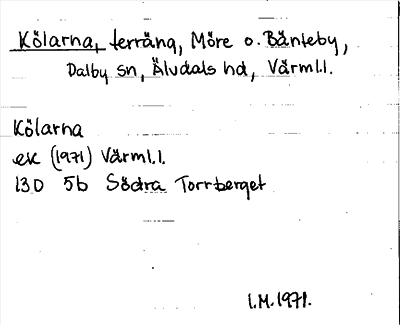 Kölarna, terräng, Möre o. Bänteby,
Dalby sn, Älvdals hd, Värml.l.
Kölarna
ek (1971) Värml.l.
13D 5b Södra Torrberget
I.M. 1971.